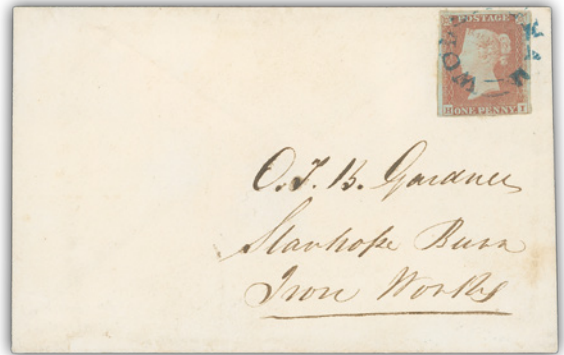 POSTAGE
ONE PENNY
O. J. B. Gardner
Stanhope Burn
Iron Works